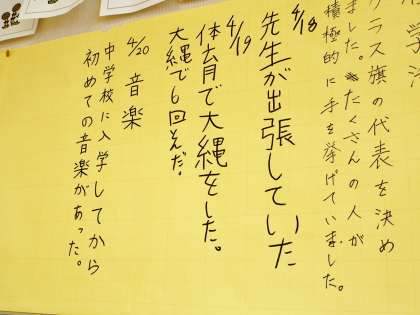 学活
クラス旗の代表を決め
ました。たくさんの人が
積極的に手を挙げていました。
4/18
先生が出張していた
4/19
体育で大縄をした。
大縄で6回とんだ。
4/20 音楽
中学校に入学してから
初めての音楽があった。